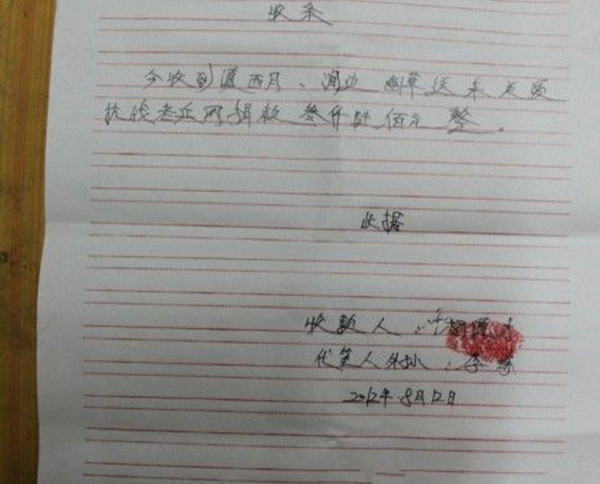 收条
今收到道西月、润边 幽草送来关爱
抗战老兵网捐款叁仟肆佰元整。
此据
收款人：
代笔人外孙：李
2012年8月12日